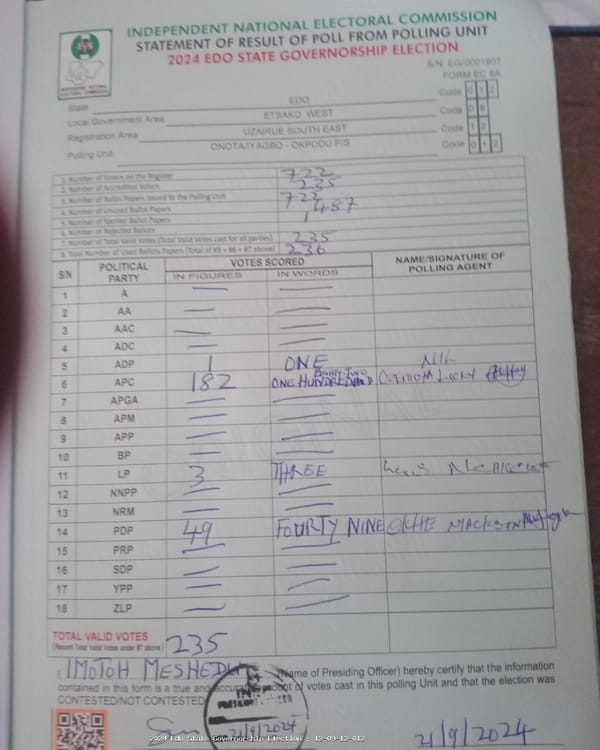 INDEPENDENT NATIONAL ELECTORAL COMMISSION
STATEMENT OF RESULT OF POLL FROM POLLING UNIT
2024 EDO STATE GOVERNORSHIP ELECTION
S/N: EG/0001907
FORM EC 8A
State EDO Code 0 1 2
Local Government Area ETSAKO WEST Code 0 9
Registration Area UZAIRUE SOUTH EAST Code 1 2
Polling Unit ONOTA/IYAGBO - OKPODU P/S Code 0 1 2
1. Number of Voters on the Register 722
2. Number of Accredited Voters 235
3. Number of Ballot Papers Issued to the Polling Unit 722
4. Number of Unused Ballot Papers 487
5. Number of Spoiled Ballot Papers 1
6. Number of Rejected Ballots
7. Number of Total Valid Votes (Total Valid Votes cast for all parties) 235
8. Total Number of Used Ballots Papers (Total of #5 + #6 + #7 above) 236
S/N POLITICAL PARTY VOTES SCORED NAME/SIGNATURE OF POLLING AGENT
IN FIGURES IN WORDS
1 A — —
2 AA — —
3 AAC — —
4 ADC — —
5 ADP 1 ONE NIL
6 APC 182 ONE HUNDRED AND EIGHTY TWO
7 APGA — —
8 APM — —
9 APP — —
10 BP — —
11 LP 3 THREE
12 NNPP — —
13 NRM — —
14 PDP 49 FOURTY NINE OKHE MACKSON
15 PRP — —
16 SDP — —
17 YPP — —
18 ZLP — —
TOTAL VALID VOTES 235
(Record Total Valid Votes under #7 above)
I, IMOTOH (Name of Presiding Officer) hereby certify that the information
contained in this form is a true and accurate account of votes cast in this polling Unit and that the election was
CONTESTED/NOT CONTESTED
21/9/2024 21/9/2024
2024 Edo State Governorship Election : 12-09-12-012